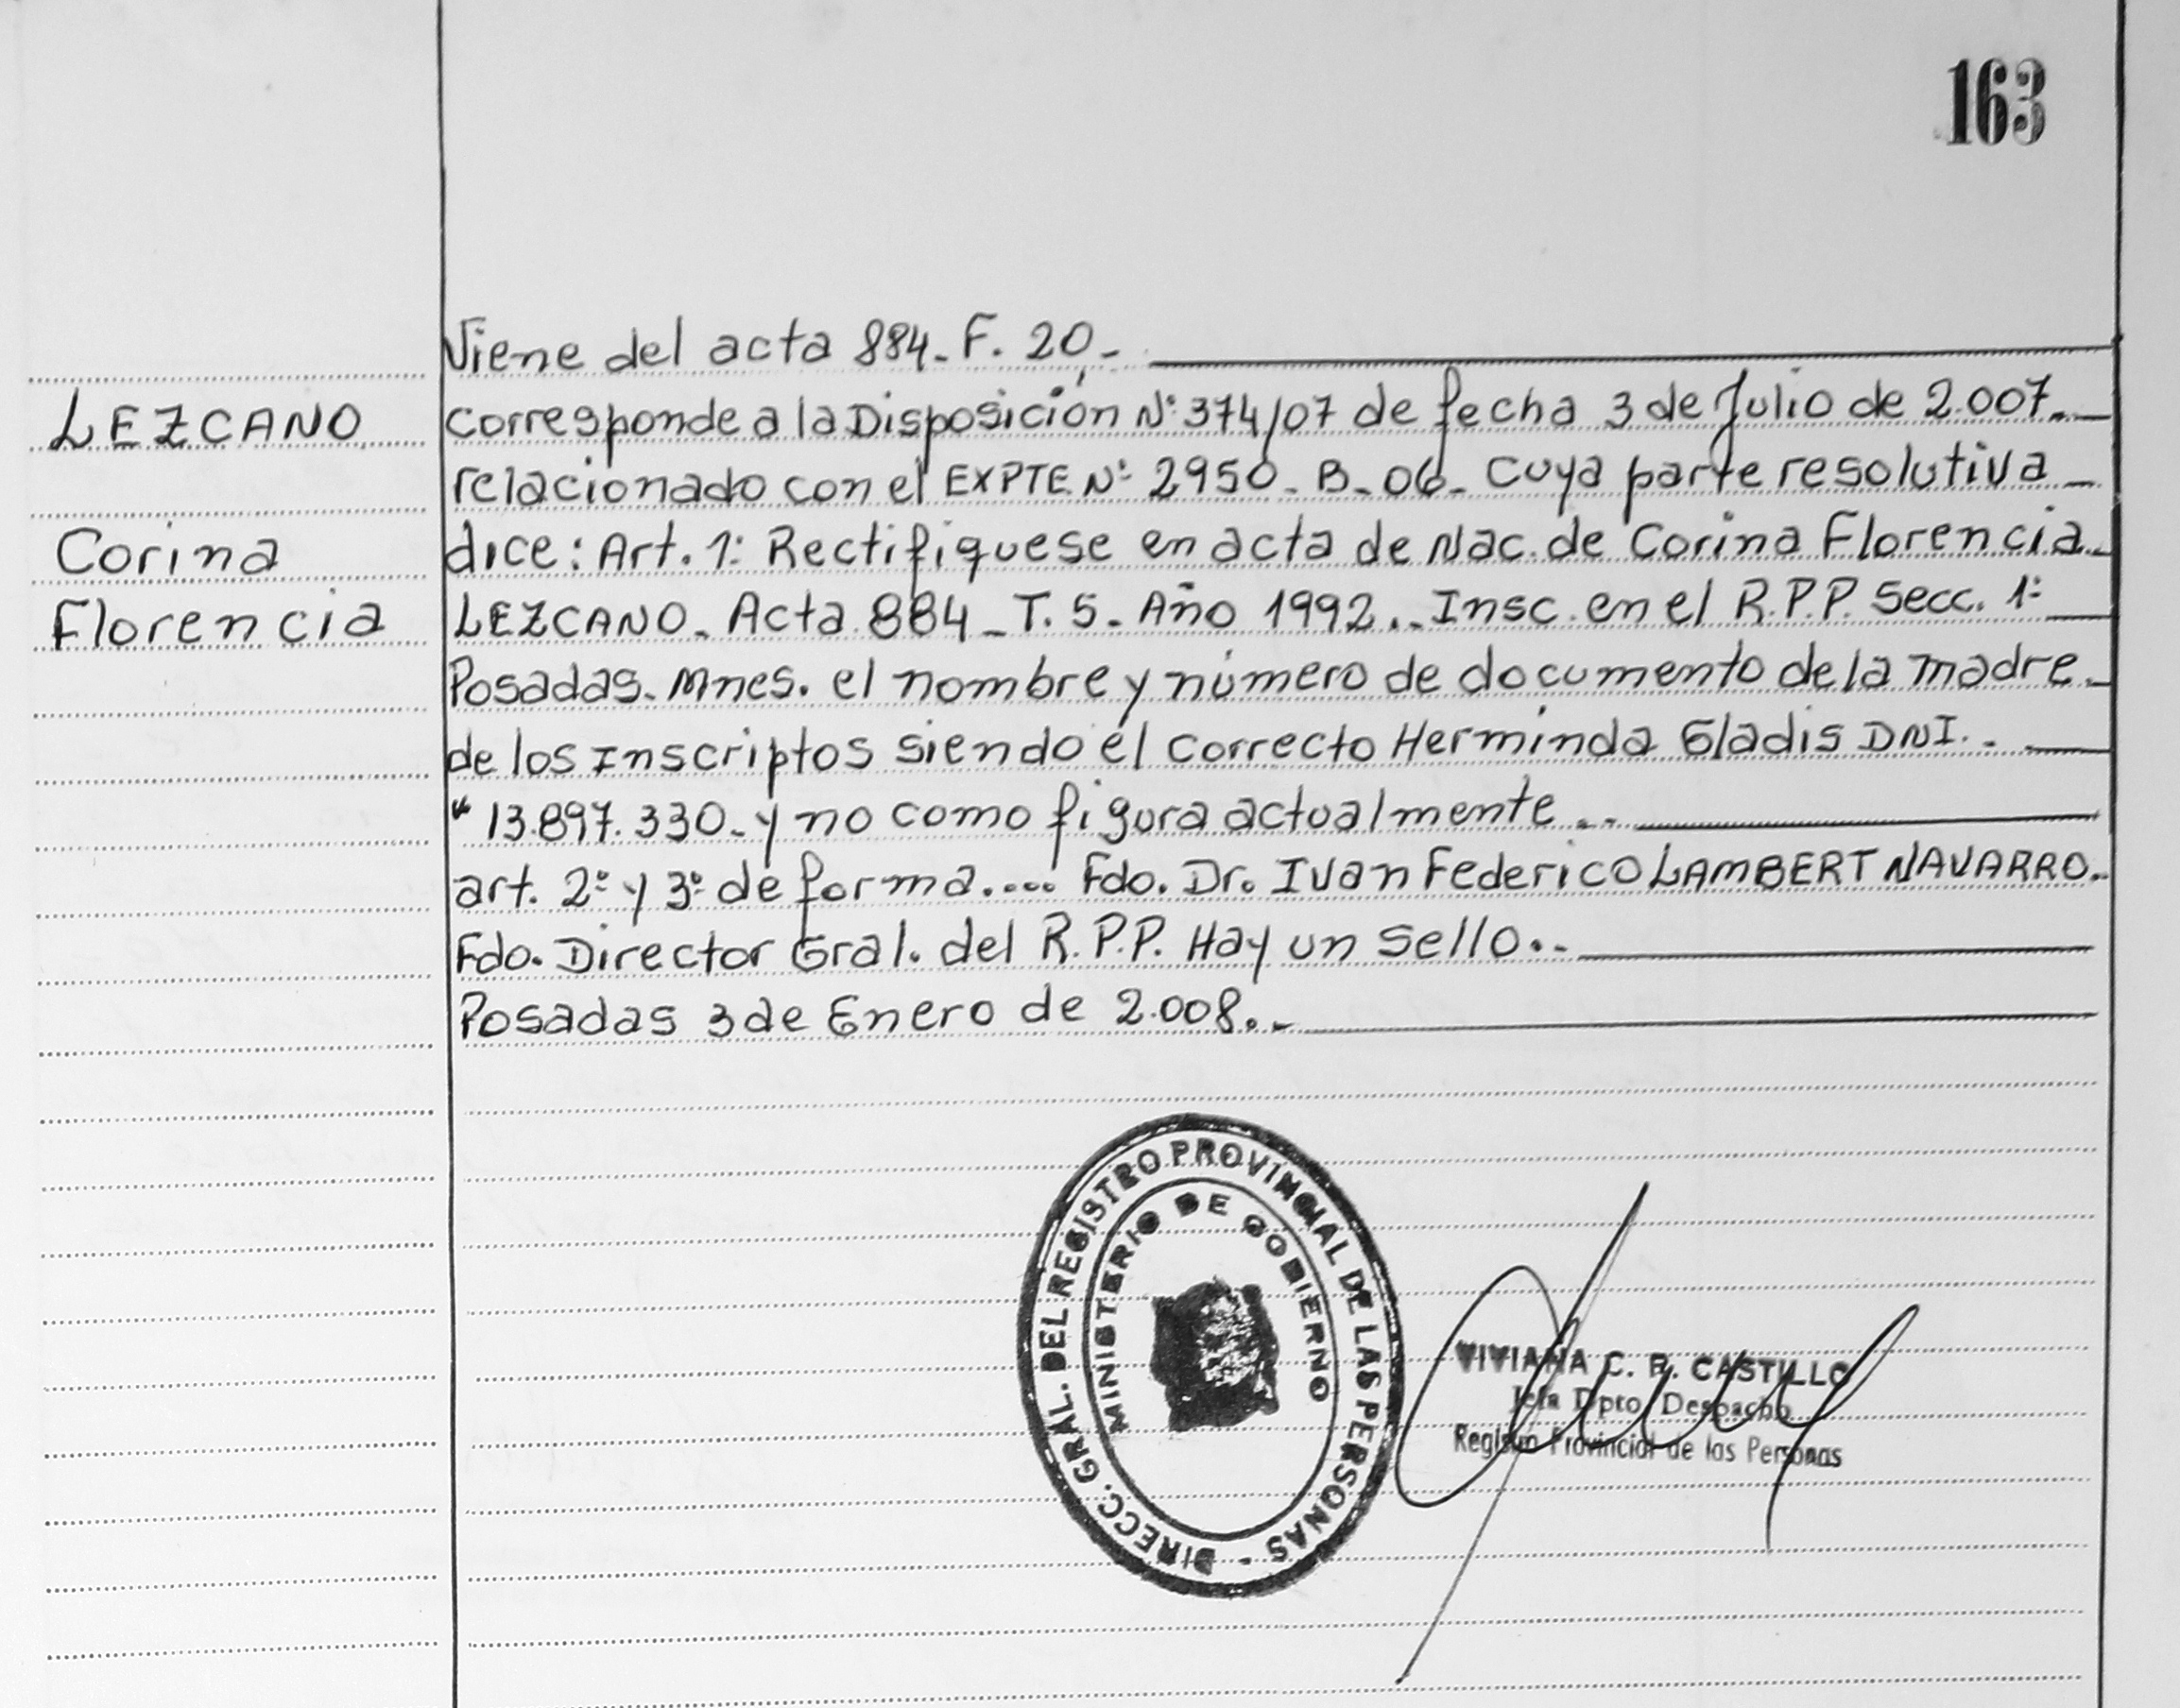 163
Viene del acta 884. F. 20.
LEZCANO
Corresponde a la Disposición N° 374/07 de fecha 3 de Julio de 2.007.
relacionado con el EXPTE N° 2950 - B - 06 - Cuya parte resolutiva
Corina
dice: Art. 1°: Rectifiquese en acta de Nac. de Corina Florencia
Florencia
LEZCANO. Acta 884 - T. 5 - Año 1992.. Insc. en el R.P.P. Secc. 1°
Posadas. Mnes. el nombre y número de documento de la madre.
de los Inscriptos siendo el correcto Herminda Gladis DNI. -
" 13.897.330. y no como figura actualmente..
art. 2° y 3° de forma.... Fdo. Dr. Ivan Federico LAMBERT NAVARRO.
Fdo. Director Gral. del R.P.P. Hay un sello..
Posadas 3 de Enero de 2.008..
DIRECC. GRAL. DEL REGISTRO PROVINCIAL DE LAS PERSONAS -
MINISTERIO DE GOBIERNO
VIVIANA C. B. CASTILLO
Jefa Dpto. Despacho
Registro Provincial de las Personas